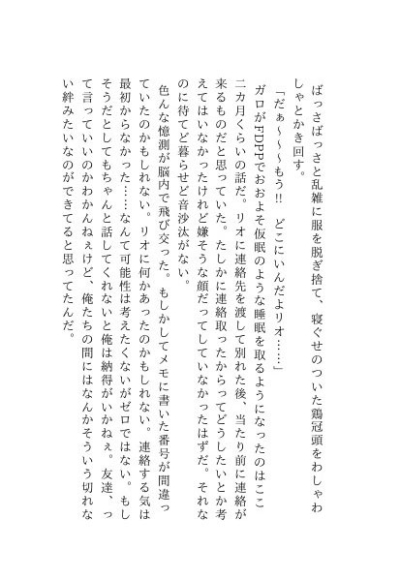 ばっさばっさと乱雑に服を脱ぎ捨て、寝ぐせのついた鶏冠頭をわしゃわ
しゃとかき回す。
「だぁ～～～もう!!　どこにいんだよリオ……」
ガロがFDPPでおおよそ仮眠のような睡眠を取るようになったのはここ
二カ月くらいの話だ。リオに連絡先を渡して別れた後、当たり前に連絡が
来るものだと思っていた。たしかに連絡取ったからってどうしたいとか考
えてはいなかったけれど嫌そうな顔だってしていなかったはずだ。それな
のに待てど暮らせど音沙汰がない。
色んな憶測が脳内で飛び交った。もしかしてメモに書いた番号が間違っ
ていたのかもしれない。リオに何かあったのかもしれない。連絡する気は
最初からなかった……なんて可能性は考えたくないがゼロではない。もし
そうだとしてもちゃんと話してくれないと俺は納得がいかねぇ。友達、っ
て言っていいのかわかんねぇけど、俺たちの間にはなんかそういう切れな
い絆みたいなのができてると思ってたんだ。